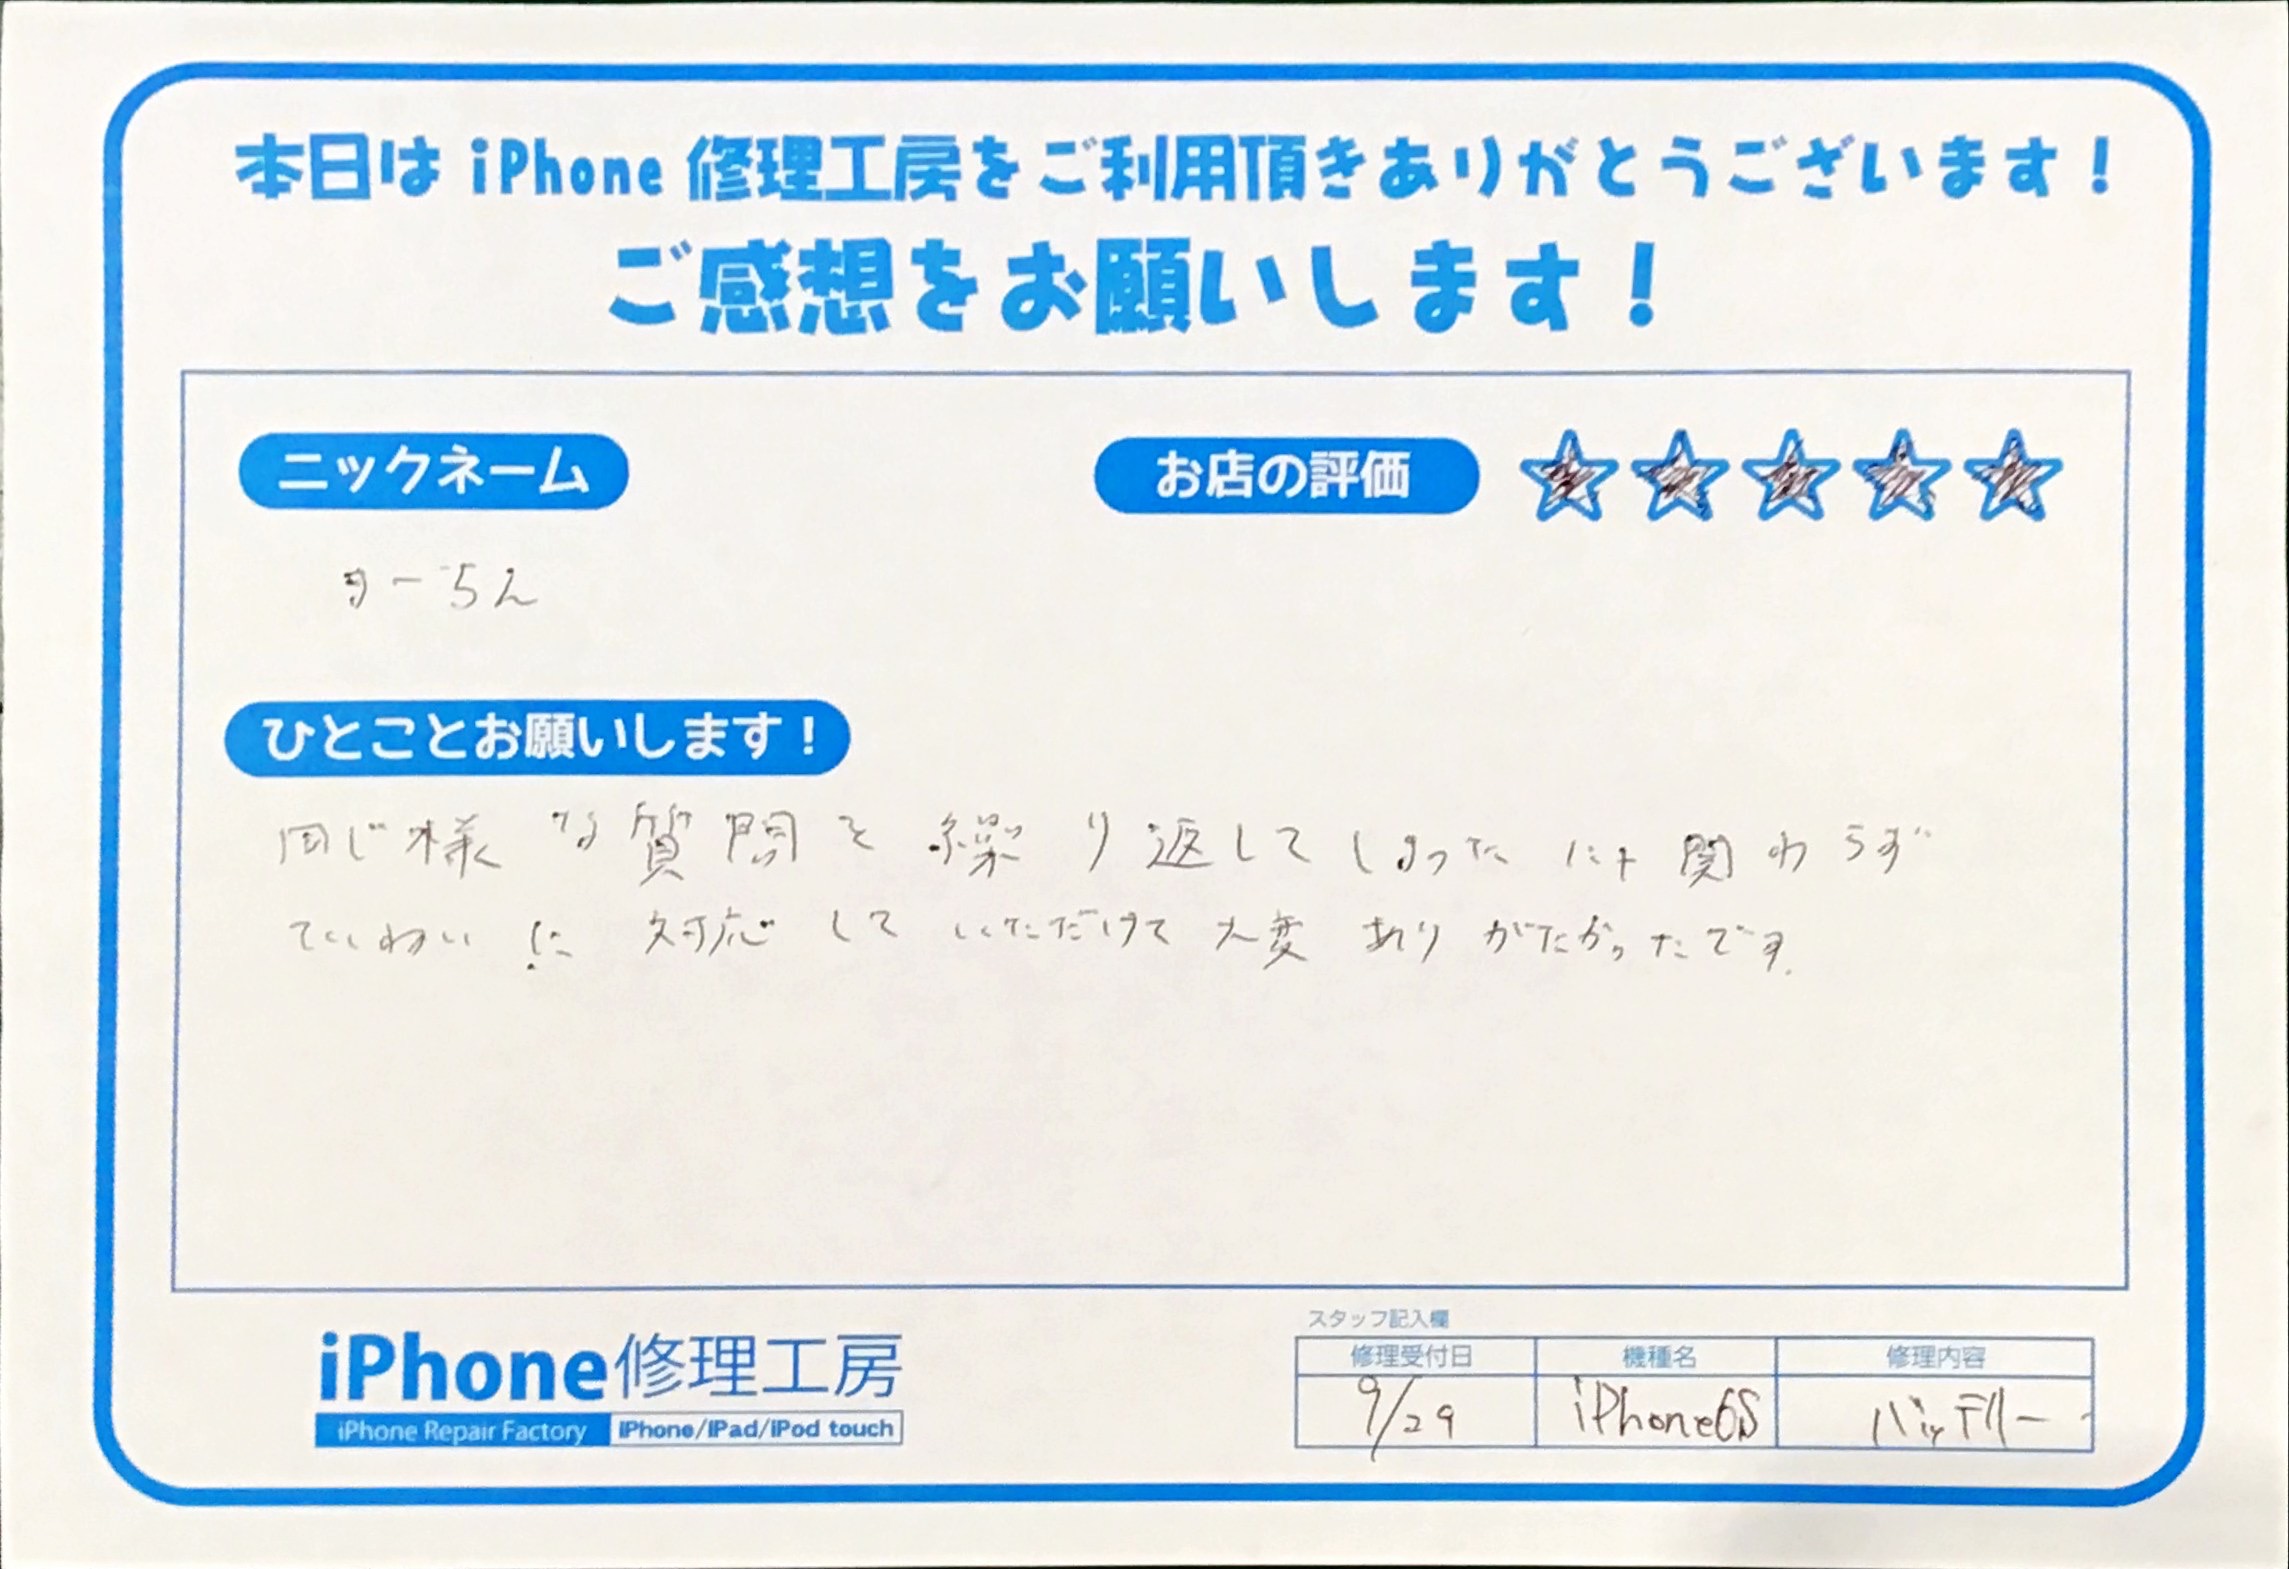 本日は iPhone 修理工房をご利用頂きありがとうございます！
ご感想をお願いします！
ニックネーム
お店の評価
ーちん
ひとことお願いします！
同じ様な質問を繰り返してしまったにも関わらず
ていねいに対応していただけて大変ありがたかったです。
iPhone修理工房
iPhone Repair Factory iPhone/iPad/iPod touch
スタッフ記入欄
修理受付日 機種名 修理内容
9/29 iPhone6S バッテリー